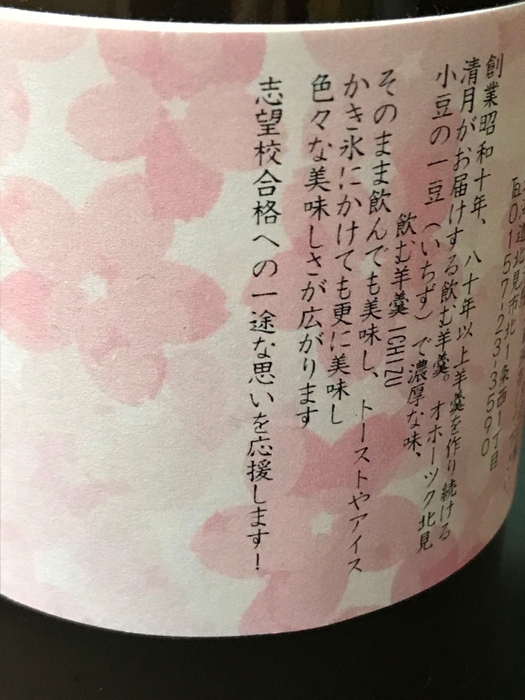 北見市北1条西1丁目
℡0157-23-3590
創業昭和十年、八十年以上羊羹を作り続ける
清月がお届けする飲む羊羹。オホーツク北見
小豆の一豆(いちず)で濃厚な味、
飲む羊羹 ICHIZU
そのまま飲んでも美味し、トーストやアイス
かき氷にかけても更に美味し
色々な美味しさが広がります
志望校合格への一途な思いを応援します!